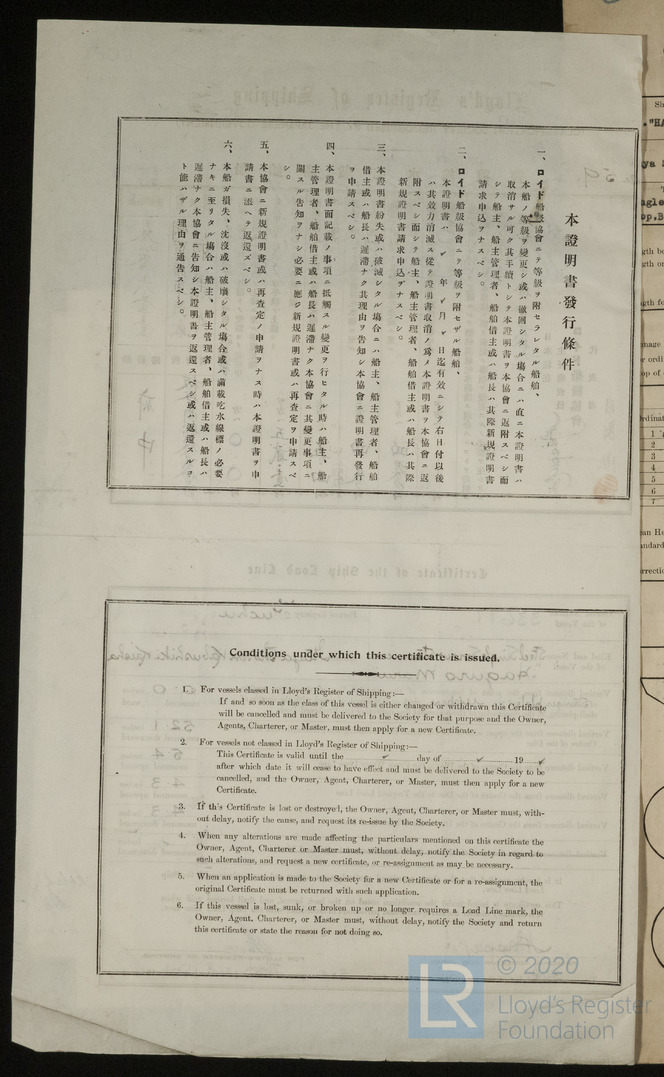 本證明書發行條件
一、ロイド船級協會ニテ等級ヲ附セラレタル船舶、
本船ノ等級ヲ變更シ或ハ撤囘シタル塲合ニハ直ニ本證明書ハ
取消サル可ク其手續トシテ本證明書ヲ本協會ニ返附スベシ而
シテ船主、船主管理者、船舶借主或ハ船長ハ其際新規證明書
請求申込ヲナスベシ。
二、ロイド船級協會ニテ等級ヲ附セザル船舶、
本證明書ハ 年 月 日迄有效ニシテ右日付以後
ハ其效力消滅ス從テ證明書取消ノ爲メ本證明書ヲ本協會ニ返
附スベシ而シテ船主、船主管理者、船舶借主或ハ船長ハ其際
新規證明書請求申込ヲナスベシ。
三、本證明書紛失或ハ破滅シタル塲合ニハ船主、船主管理者、船舶
借主或ハ船長ハ遲滯ナク其理由ヲ告知シ本協會ニ證明書再發行
ヲ申請スベシ。
四、本證明書面記載ノ事項ニ抵觸スル變更ヲ行ヒタル時ハ船主、船
主管理者、船舶借主或ハ船長ハ遲滯ナク本協會ニ其變更事項ニ
關スル告知ヲナシ必要ニ應ジ新規證明書或ハ再査定ヲ申請スベ
シ。
五、本協會ニ新規證明書或ハ再査定ノ申請ヲナス時ハ本證明書ヲ申
請書ニ添ヘテ返還スベシ。
六、本船ガ損失、沈沒或ハ破壞シタル塲合或ハ滿載吃水線標ノ必要
ナキニ至リタル塲合ハ船主、船主管理者、船舶借主或ハ船長ハ
遲滯ナク本協會ニ告知シ本證明書ヲ返還スベシ或ハ返還スルコ
ト能ハザル理由ヲ通告スベシ。
Conditions under which this certificate is issued.
1. For vessels classed in Lloyd's Register of Shipping:—
If and so soon as the class of this vessel is either changed or withdrawn this Certificate
will be cancelled and must be delivered to the Society for that purpose and the Owner,
Agents, Charterer, or Master, must then apply for a new Certificate.
2. For vessels not classed in Lloyd's Register of Shipping:—
This Certificate is valid until the day of 19
after which date it will cease to have effect and must be delivered to the Society to be
cancelled, and the Owner, Agent, Charterer, or Master, must then apply for a new
Certificate.
3. If this Certificate is lost or destroyed, the Owner, Agent, Charterer, or Master must, with-
out delay, notify the cause, and request its re-issue by the Society.
4. When any alterations are made affecting the particulars mentioned on this certificate the
Owner, Agent, Charterer or Master must, without delay, notify the Society in regard to
such alterations, and request a new certificate, or re-assignment as may be necessary.
5. When an application is made to the Society for a new Certificate or for a re-assignment, the
original Certificate must be returned with such application.
6. If this vessel is lost, sunk, or broken up or no longer requires a Load Line mark, the
Owner, Agent, Charterer, or Master must, without delay, notify the Society and return
this certificate or state the reason for not doing so.
LR © 2020
Lloyd's Register
Foundation